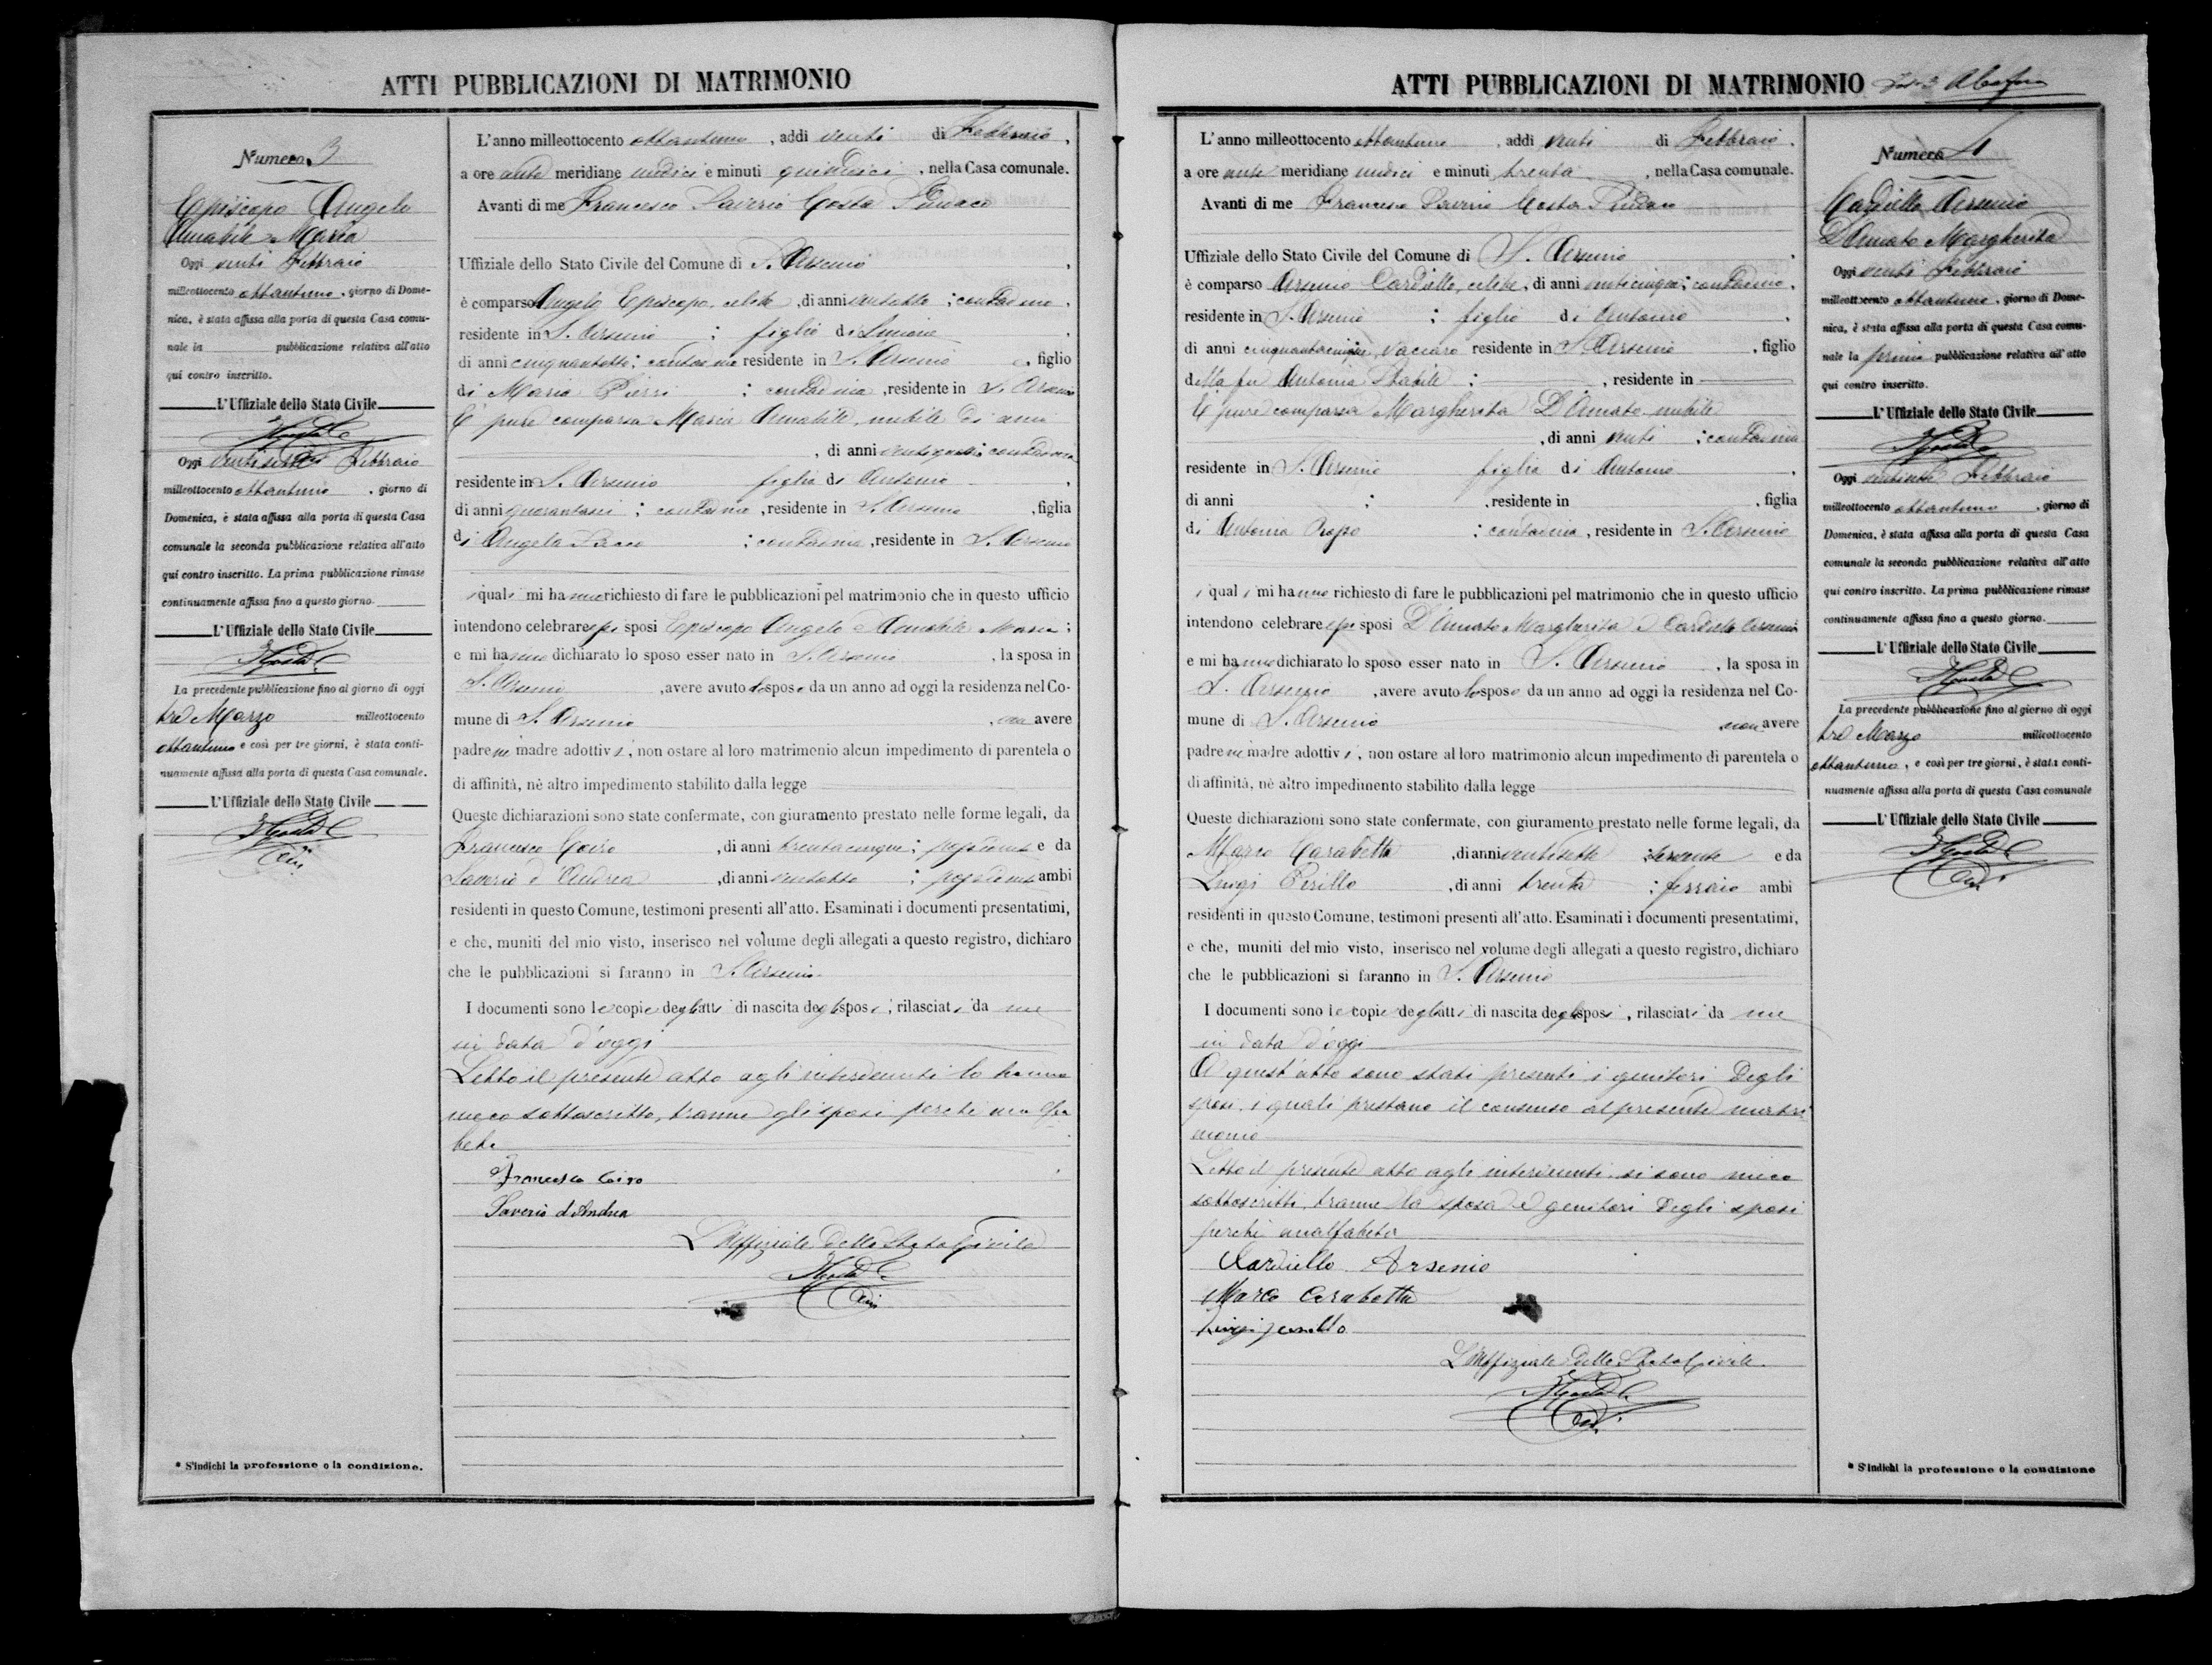 ATTI PUBBLICAZIONI DI MATRIMONIO
Numero 3
Episcopo Angelo
Amabile Maria
Oggi venti Febbraio
milleottocento ottantuno, giorno di Dome-
nica, è stata affissa alla porta di questa Casa comu-
nale la pubblicazione relativa all'atto
qui contro inscritto.
L'Uffiziale dello Stato Civile
Oggi ventisette Febbraio
milleottocento ottantuno, giorno di
Domenica, è stata affissa alla porta di questa Casa
comunale la seconda pubblicazione relativa all'atto
qui contro inscritto. La prima pubblicazione rimase
continuamente affissa fino a questo giorno.
L'Uffiziale dello Stato Civile
La precedente pubblicazione fino al giorno di oggi
tre Marzo milleottocento
ottantuno e così per tre giorni, è stata conti-
nuamente affissa alla porta di questa Casa comunale.
L'Uffiziale dello Stato Civile
* S'indichi la professione o la condizione.
L'anno milleottocento ottantuno, addi venti di Febbraio,
a ore ante meridiane undici e minuti quindici, nella Casa comunale.
Avanti di me Francesco Saverio Costa Sindaco
Uffiziale dello Stato Civile del Comune di S. Arsenio,
è comparso Angelo Episcopo, celibe, di anni ventotto; contadino,
residente in S. Arsenio; figlio di
di anni cinquantotto; contadino residente in S. Arsenio, figlio
di Maria Pierri; contadina, residente in S. Arsenio
È pure comparsa Maria Amabile, nubile di anni
, di anni contadina
residente in S. Arsenio figlia di Antonio,
di anni quarantasei; contadino, residente in S. Arsenio, figlia
di Angela Sacco; contadina, residente in S. Arsenio
i quali mi hanno richiesto di fare le pubblicazioni pel matrimonio che in questo ufficio
intendono celebrare essi sposi Episcopo Angelo e Amabile Maria;
e mi hanno dichiarato lo sposo esser nato in S. Arsenio, la sposa in
S. Arsenio, avere avuto lo sposo da un anno ad oggi la residenza nel Co-
mune di S. Arsenio, non avere
padre nè madre adottivi, non ostare al loro matrimonio alcun impedimento di parentela o
di affinità, nè altro impedimento stabilito dalla legge
Queste dichiarazioni sono state confermate, con giuramento prestato nelle forme legali, da
Francesco Coiro, di anni trentacinque; e da
Saverio d'Andrea, di anni ventotto; ambi
residenti in questo Comune, testimoni presenti all'atto. Esaminati i documenti presentatimi,
e che, muniti del mio visto, inserisco nel volume degli allegati a questo registro, dichiaro
che le pubblicazioni si faranno in S. Arsenio
I documenti sono le copie degli atti di nascita degli sposi, rilasciati da me
in data d'oggi
Letto il presente atto agli intervenuti lo hanno
meco sottoscritto, tranne gli sposi perchè analfa
beti
Francesco Coiro
Saverio d'Andrea
L'Uffiziale dello Stato Civile
ATTI PUBBLICAZIONI DI MATRIMONIO
L'anno milleottocento ottantuno, addi venti di Febbraio,
a ore ante meridiane undici e minuti trenta, nella Casa comunale.
Avanti di me Francesco Saverio Costa Sindaco
Uffiziale dello Stato Civile del Comune di S. Arsenio
è comparso Arsenio Cardiello, celibe, di anni venticinque; contadino,
residente in S. Arsenio; figlio di Antonio,
di anni cinquantacinque vaccaro residente in S. Arsenio, figlio
della fu Antonia Stabile; , residente in
È pure comparsa Margherita D'Amato nubile
, di anni venti; contadina
residente in S. Arsenio figlia di Antonio,
di anni ; , residente in , figlia
di Antonia ; contadina, residente in S. Arsenio
i quali mi hanno richiesto di fare le pubblicazioni pel matrimonio che in questo ufficio
intendono celebrare essi sposi D'Amato Margherita e Cardiello Arsenio
e mi hanno dichiarato lo sposo esser nato in S. Arsenio, la sposa in
S. Arsenio, avere avuto lo sposo da un anno ad oggi la residenza nel Co-
mune di S. Arsenio non avere
padre nè madre adottivi, non ostare al loro matrimonio alcun impedimento di parentela o
di affinità, nè altro impedimento stabilito dalla legge
Queste dichiarazioni sono state confermate, con giuramento prestato nelle forme legali, da
Marco Carabetta, di anni ventisette; servente e da
Luigi Pirillo, di anni trenta; ferraio ambi
residenti in questo Comune, testimoni presenti all'atto. Esaminati i documenti presentatimi,
e che, muniti del mio visto, inserisco nel volume degli allegati a questo registro, dichiaro
che le pubblicazioni si faranno in S. Arsenio
I documenti sono le copie degli atti di nascita degli sposi, rilasciati da me
in data d'oggi
A quest'atto sono stati presenti i genitori degli
sposi, i quali prestano il consenso al presente matri
monio
Letto il presente atto agli intervenuti, si sono meco
sottoscritti, tranne la sposa e genitori degli sposi
perchè analfabeta
Cardiello Arsenio
Marco Carabetta
L'Uffiziale dello Stato Civile
Numero 4
Cardiello Arsenio
D'Amato Margherita
Oggi venti Febbraio
milleottocento ottantuno, giorno di Dome-
nica, è stata affissa alla porta di questa Casa comu-
nale la prima pubblicazione relativa all'atto
qui contro inscritto.
L'Uffiziale dello Stato Civile
Oggi ventisette Febbraio
milleottocento ottantuno, giorno di
Domenica, è stata affissa alla porta di questa Casa
comunale la seconda pubblicazione relativa all'atto
qui contro inscritto. La prima pubblicazione rimase
continuamente affissa fino a questo giorno.
L'Uffiziale dello Stato Civile
La precedente pubblicazione fino al giorno di oggi
tre Marzo milleottocento
ottantuno, e così per tre giorni, è stata conti-
nuamente affissa alla porta di questa Casa comunale
L'Uffiziale dello Stato Civile
* S'indichi la professione o la condizione